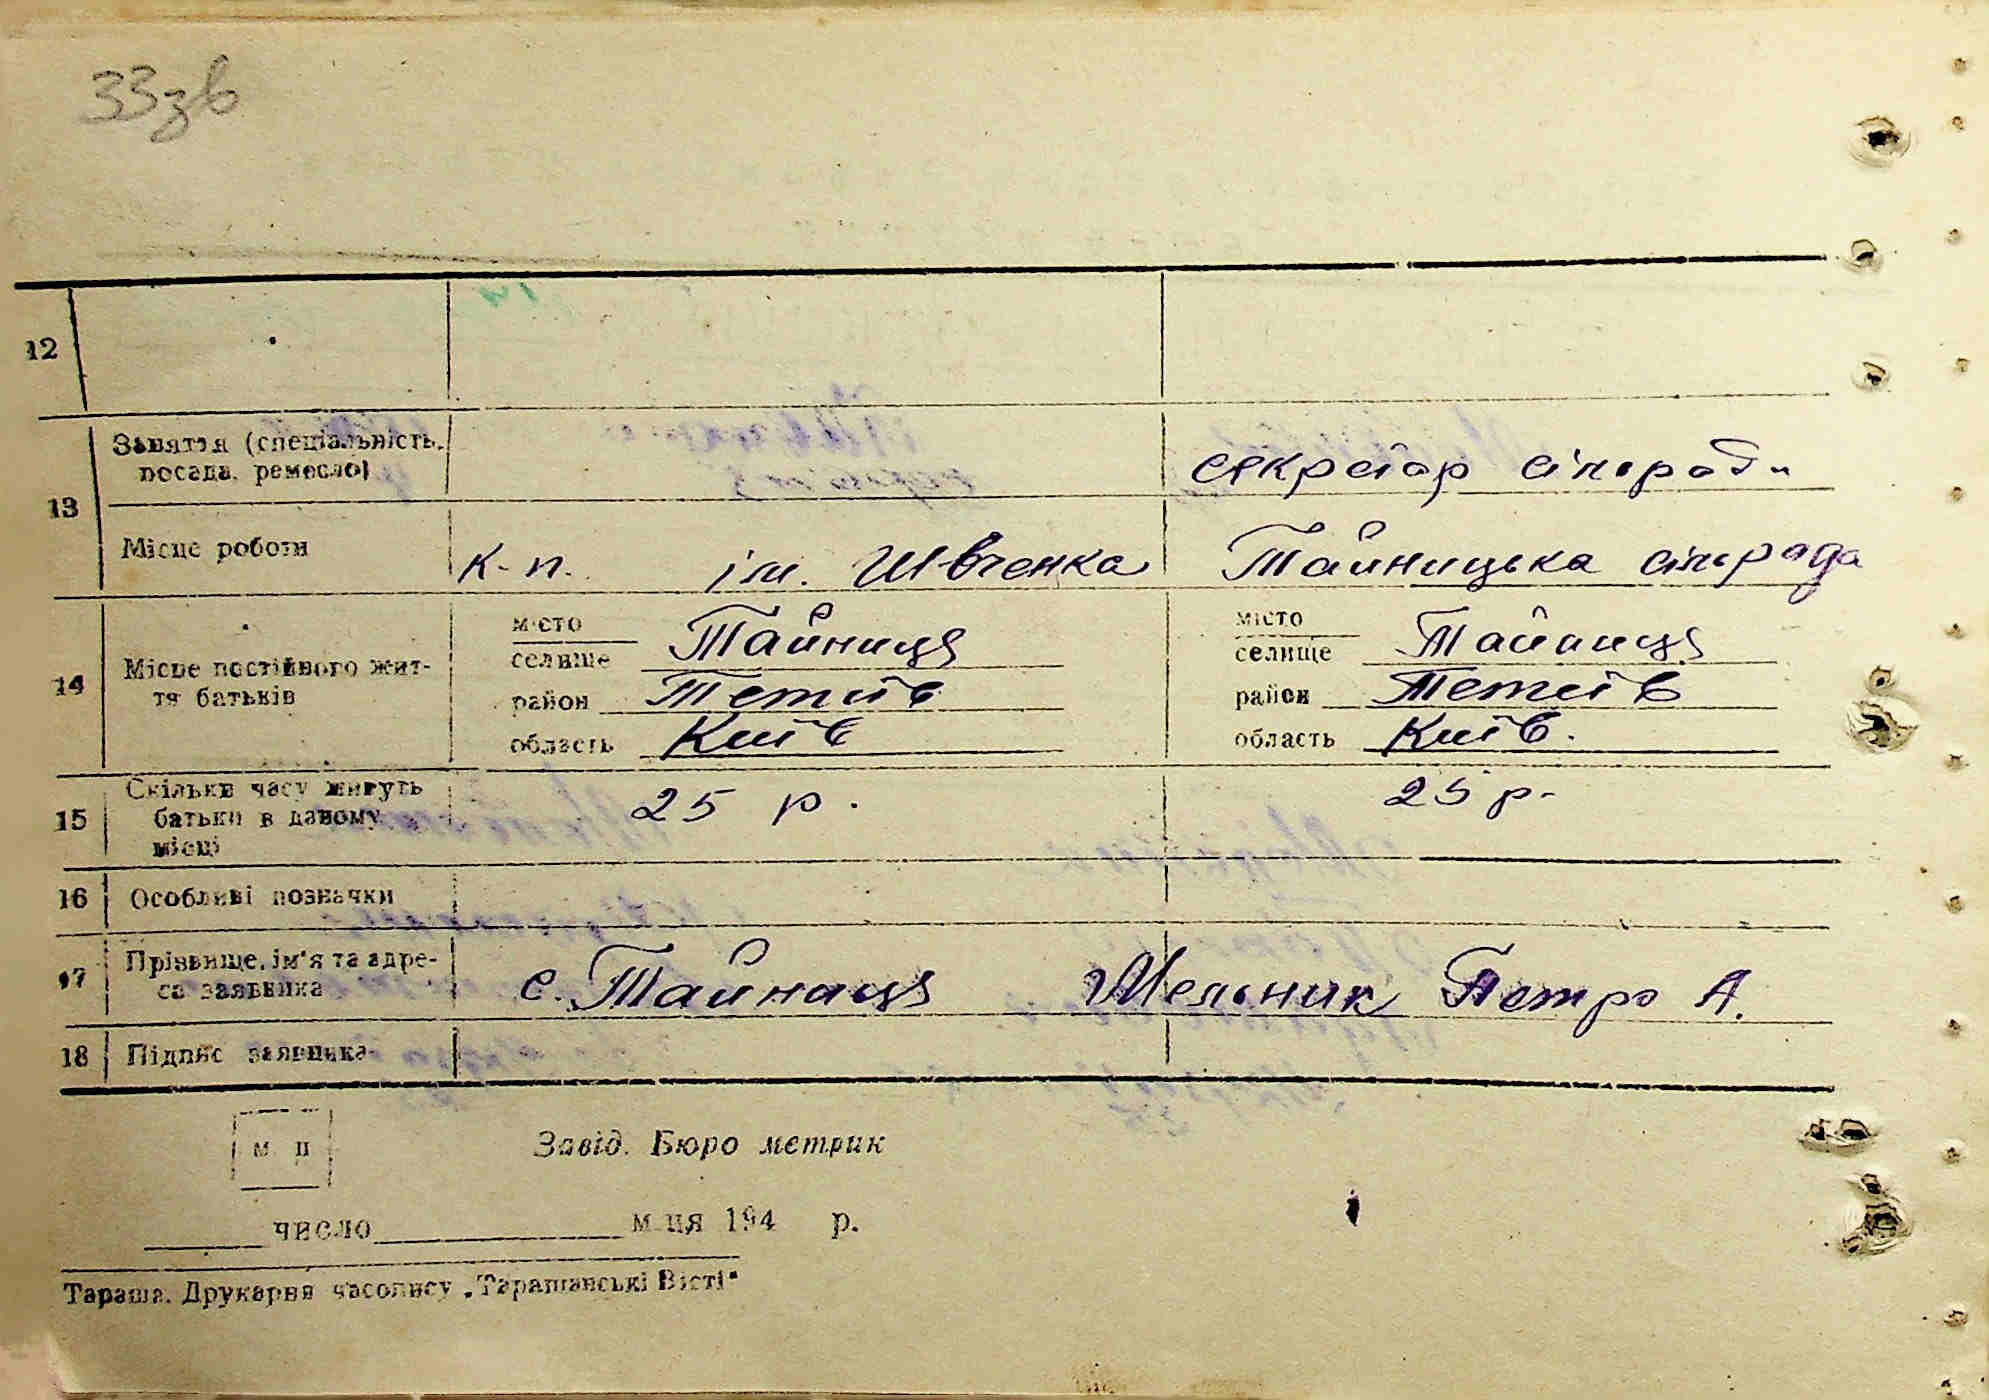 33зв
12
13 Заняття (спеціальність, посада, ремесло) секретар сільради
Місце роботи к-п. ім. Шевченка Тайницька сільрада
14 Місце постійного життя батьків
місто селище Тайниця місто селище Тайниця
район Тетиїв район Тетиїв
область Київ область Київ.
15 Скільки часу живуть батьки в даному місці 25 р. 25 р.
16 Особливі позначки
17 Прізвище, ім'я та адреса заявника с. Тайниця Мельник Петро А.
18 Підпис заявника
м п Завід. Бюро метрик
число м-ця 194 р.
Тараща. Друкарня часопису „Таращанські Вісті"